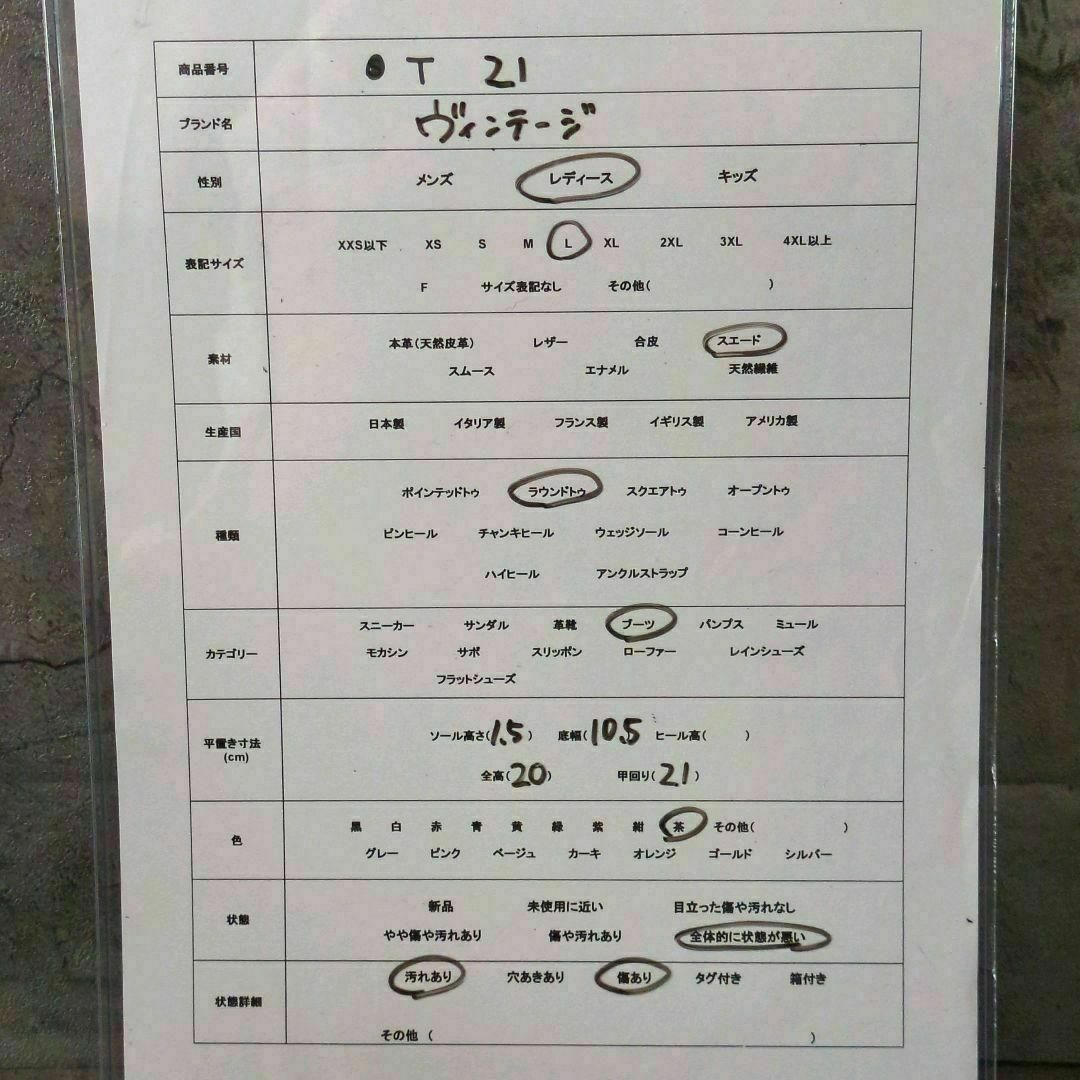 商品番号 ●T 21
ブランド名 ヴィンテージ
性別 メンズ レディース キッズ
表記サイズ XXS以下 XS S M L XL 2XL 3XL 4XL以上
F サイズ表記なし その他( )
素材 本革(天然皮革) レザー 合皮 スエード
スムース エナメル 天然繊維
生産国 日本製 イタリア製 フランス製 イギリス製 アメリカ製
種類 ポインテッドトゥ ラウンドトゥ スクエアトゥ オープントゥ
ピンヒール チャンキヒール ウェッジソール コーンヒール
ハイヒール アンクルストラップ
カテゴリー スニーカー サンダル 革靴 ブーツ パンプス ミュール
モカシン サボ スリッポン ローファー レインシューズ
フラットシューズ
平置き寸法 (cm) ソール高さ(1.5) 底幅(10.5 ヒール高( )
全高(20) 甲回り(21)
色 黒 白 赤 青 黄 緑 紫 紺 茶 その他( )
グレー ピンク ベージュ カーキ オレンジ ゴールド シルバー
状態 新品 未使用に近い 目立った傷や汚れなし
やや傷や汚れあり 傷や汚れあり 全体的に状態が悪い
状態詳細 汚れあり 穴あきあり 傷あり タグ付き 箱付き
その他 ( )